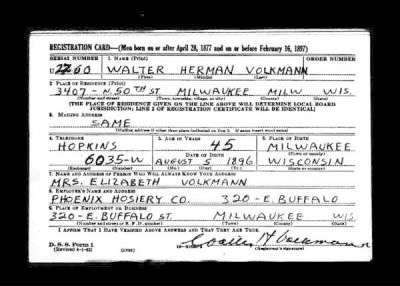 REGISTRATION CARD—(Men born on or after April 28, 1877 and on or before February 16, 1897)
SERIAL NUMBER 1. NAME (Print) ORDER NUMBER
U 2260 WALTER HERMAN VOLKMANN
(First) (Middle) (Last)
2. PLACE OF RESIDENCE (Print)
3407-N. 50TH ST. MILWAUKEE MILW WIS.
(Number and street) (Town, township, village, or city) (County) (State)
[THE PLACE OF RESIDENCE GIVEN ON THE LINE ABOVE WILL DETERMINE LOCAL BOARD
JURISDICTION; LINE 2 OF REGISTRATION CERTIFICATE WILL BE IDENTICAL]
3. MAILING ADDRESS
SAME
[Mailing address if other than place indicated on line 2. If same insert word same]
4. TELEPHONE 5. AGE IN YEARS 6. PLACE OF BIRTH
HOPKINS 45 MILWAUKEE
DATE OF BIRTH (Town or county)
6035-W AUGUST 5 1896 WISCONSIN
(Exchange) (Number) (Mo.) (Day) (Yr.) (State or country)
7. NAME AND ADDRESS OF PERSON WHO WILL ALWAYS KNOW YOUR ADDRESS
MRS. ELIZABETH VOLKMANN
8. EMPLOYER'S NAME AND ADDRESS
PHOENIX HOSIERY CO. 320-E. BUFFALO
9. PLACE OF EMPLOYMENT OR BUSINESS
320-E. BUFFALO ST. MILWAUKEE WIS
(Number and street or R. F. D. number) (Town) (County) (State)
I AFFIRM THAT I HAVE VERIFIED ABOVE ANSWERS AND THAT THEY ARE TRUE.
D. S. S. Form 1
(Revised 4-1-42) (over) Walter H Volkmann
(Registrant's signature)